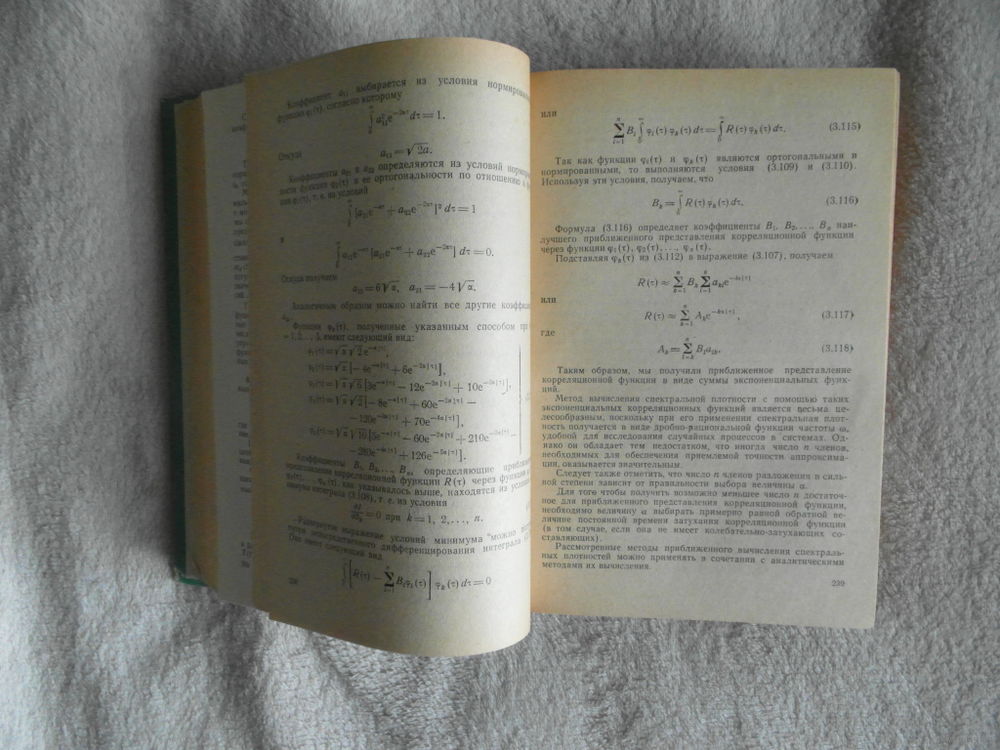 Коэффициент a₁₁ выбирается из условия
функции φ₁(τ), согласно которому
∫ a²₁₁e^{−2ατ} dτ = 1.
Откуда
a₁₁ = √2α.
Коэффициенты a₂₁ и a₂₂ определяются из условий
функции φ₂(τ) и ее ортогональности по отношению к
φ₁(τ), т. е. из условий
∫ [a₂₁e^{−ατ} + a₂₂e^{−2ατ}]² dτ = 1
и
∫ a₁₁e^{−ατ} [a₂₁e^{−ατ} + a₂₂e^{−2ατ}] dτ = 0.
Откуда получаем
a₂₂ = 6√α, a₂₁ = −4√α.
Аналогичным образом можно найти все другие
Функции φₖ(τ), полученные указанным способом при
= 1, 2, ..., 5, имеют следующий вид:
φ₁(τ) = √α √2 e^{−α|τ|},
φ₂(τ) = √α [−4e^{−α|τ|} + 6e^{−2α|τ|}],
φ₃(τ) = √α √6 [3e^{−α|τ|} − 12e^{−2α|τ|} + 10e^{−3α|τ|}],
φ₄(τ) = √α √2 [−8e^{−α|τ|} + 60e^{−2α|τ|} −
−120e^{−3α|τ|} + 70e^{−4α|τ|}],
φ₅(τ) = √α √10 [5e^{−α|τ|} − 60e^{−2α|τ|} + 210e^{−3α|τ|} −
−280e^{−4α|τ|} + 126e^{−5α|τ|}].
Коэффициенты B₁, B₂, ..., Bₙ, определяющие
представление корреляционной функции R(τ) через функции
φₙ(τ), как указывалось выше, находятся из
интеграла (3.108), т. е. из условия
∂I/∂Bₖ = 0 при k = 1, 2, ..., n.
Развернутое выражение условий минимума можно
путем непосредственного дифференцирования интеграла
Оно имеет следующий вид
∫ [R(τ) − ∑ Bᵢφᵢ(τ)] φₖ(τ) dτ = 0
238
или
∑ⁿᵢ₌₁ Bᵢ ∫₀^∞ φᵢ(τ) φₖ(τ) dτ = ∫₀^∞ R(τ) φₖ(τ) dτ. (3.115)
Так как функции φᵢ(τ) и φₖ(τ) являются ортогональными и
нормированными, то выполняются условия (3.109) и (3.110).
Используя эти условия, получаем, что
Bₖ = ∫₀^∞ R(τ) φₖ(τ) dτ. (3.116)
Формула (3.116) определяет коэффициенты B₁, B₂, ..., Bₙ наи-
лучшего приближенного представления корреляционной функции
через функции φ₁(τ), φ₂(τ), ..., φₙ(τ).
Подставляя φₖ(τ) из (3.112) в выражение (3.107), получаем
R(τ) ≈ ∑ⁿₖ₌₁ Bₖ ∑ aₖₗe^{−lα|τ|}
или
R(τ) ≈ ∑ⁿₖ₌₁ Aₖe^{−kα|τ|}, (3.117)
где
Aₖ = ∑ⁿₗ₌ₖ Bₗaₗₖ. (3.118)
Таким образом, мы получили приближенное представление
корреляционной функции в виде суммы экспоненциальных функ-
ций.
Метод вычисления спектральной плотности с помощью таких
экспоненциальных корреляционных функций является весьма це-
лесообразным, поскольку при его применении спектральная плот-
ность получается в виде дробно-рациональной функции частоты ω,
удобной для исследования случайных процессов в системах. Од-
нако он обладает тем недостатком, что иногда число n членов,
необходимых для обеспечения приемлемой точности аппроксима-
ции, оказывается значительным.
Следует также отметить, что число n членов разложения в силь-
ной степени зависит от правильности выбора величины α.
Для того чтобы получить возможно меньшее число n достаточ-
ное для приближенного представления корреляционной функции,
необходимо величину α выбирать примерно равной обратной ве-
личине постоянной времени затухания корреляционной функции
(в том случае, если она не имеет колебательно-затухающих со-
ставляющих).
Рассмотренные методы приближенного вычисления спектраль-
ных плотностей можно применять в сочетании с аналитическими
методами их вычисления.
239